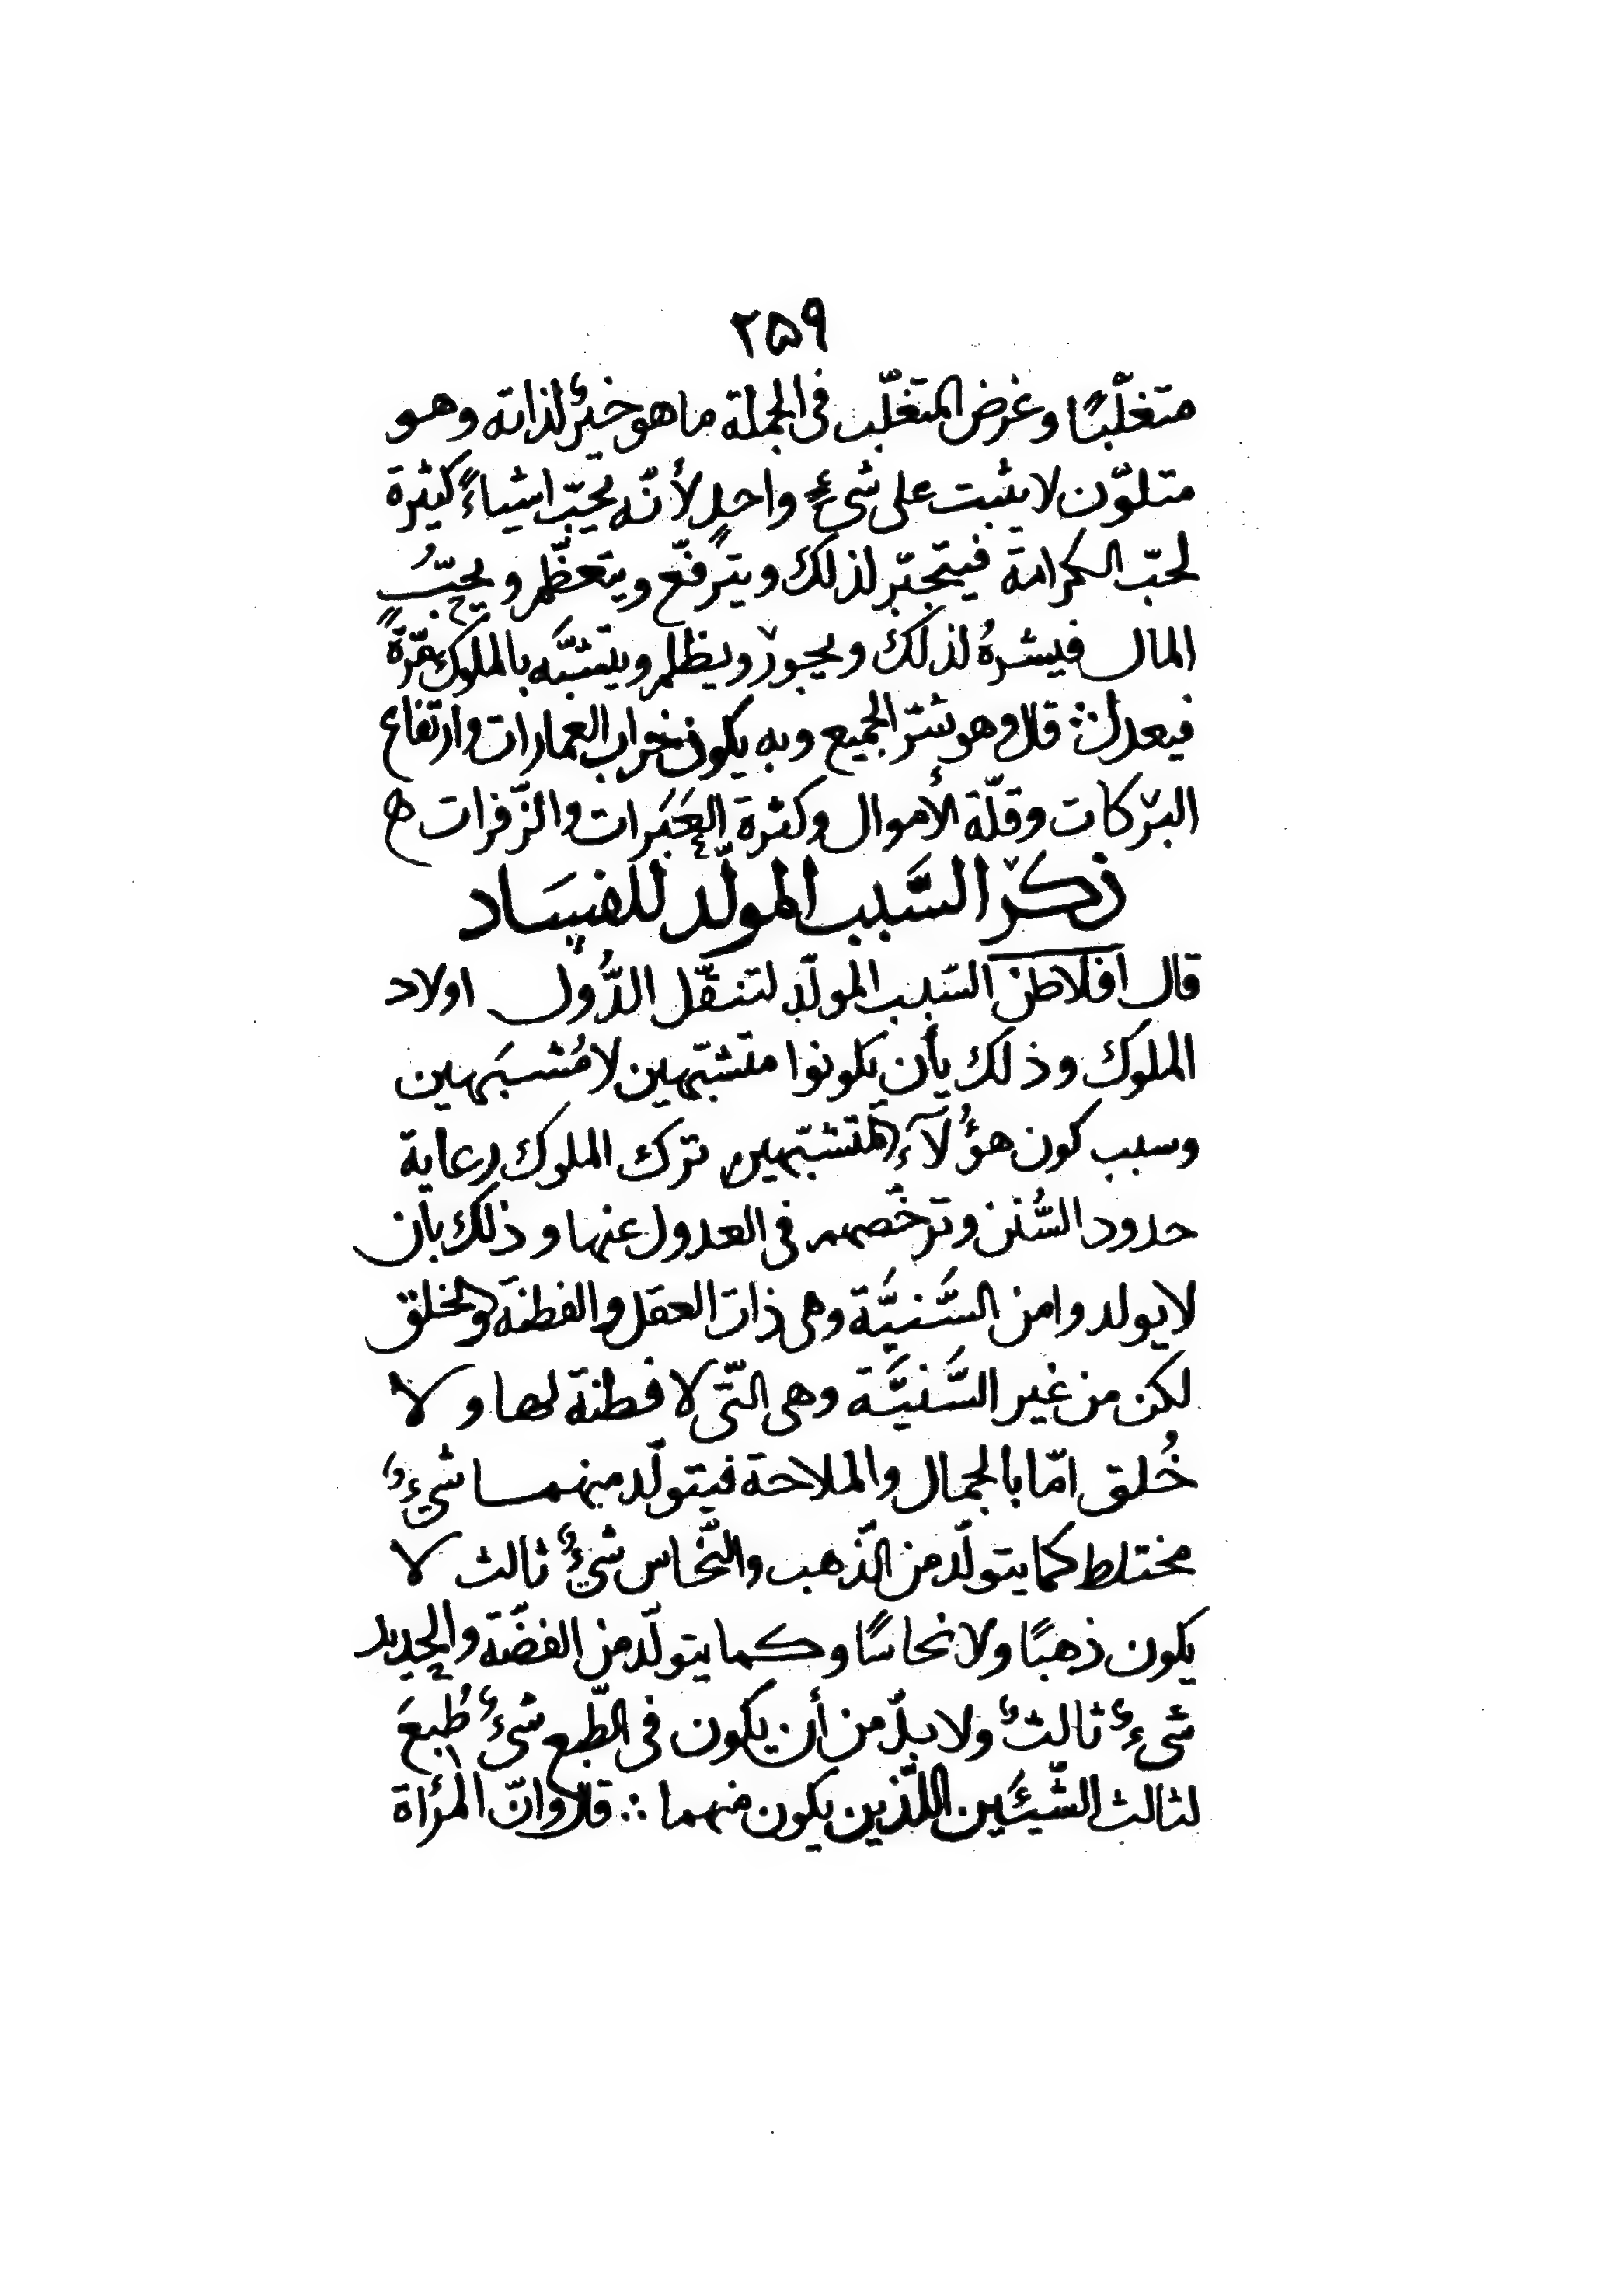 ٢۵٩
متغلّبًا وغرض المتغلّب فى الجملة ما هو خيرٌ لذاته وهو
متلوّن لا يثبت على شىءٍ واحدٍ لأنّه يحبّ اشياءً كثيرة
لحبّ الكرامة فيتجبّر لذلك ويترفّع ويتعظّم ويحبّ
المال فيشرهُ لذلك ويجور ويظلم ويتشبّه بالملوك مرّةً
فيعدل ∴ قال وهو شرّ الجميع وبه يكون خراب العمارات وارتفاع
البركات وقلّة الأموال وكثرة العَبَرات والزّفرات ه
ذكر السَّبب المولّد للفسَاد
قال افلاطن السّبب المولّد لتنقّل الدُّول اولاد
الملوك وذلك بأن يكونوا متشبّهين لا مُشبَهين
وسبب كون هؤُلآءِ المتشبّهين ترك الملوك رعاية
حدود السُّنن وترخّصهم فى العدول عنها وذلك بان
لا يولدوا من السَّنيَّة وهى ذات العقل والفطنة والخلق
لكن من غير السَّنيَّة وهى الّتى لا فطنة لها ولا
خُلق امّا بالجمال والملاحة فيتولّد منهما شىءٌ
مختلط كما يتولّد من الذّهب والنّحاس شىءٌ ثالث لا
يكون ذهبًا ولا نحاسًا وكما يتولّد من الفضّة والحديد
شىءٌ ثالثٌ ولا بدّ من أن يكون فى الطّبع شىءٌ طُبعَ
لثالث الشّيئَين اللّذين يكون منهما ∴ قال وانّ المرأة